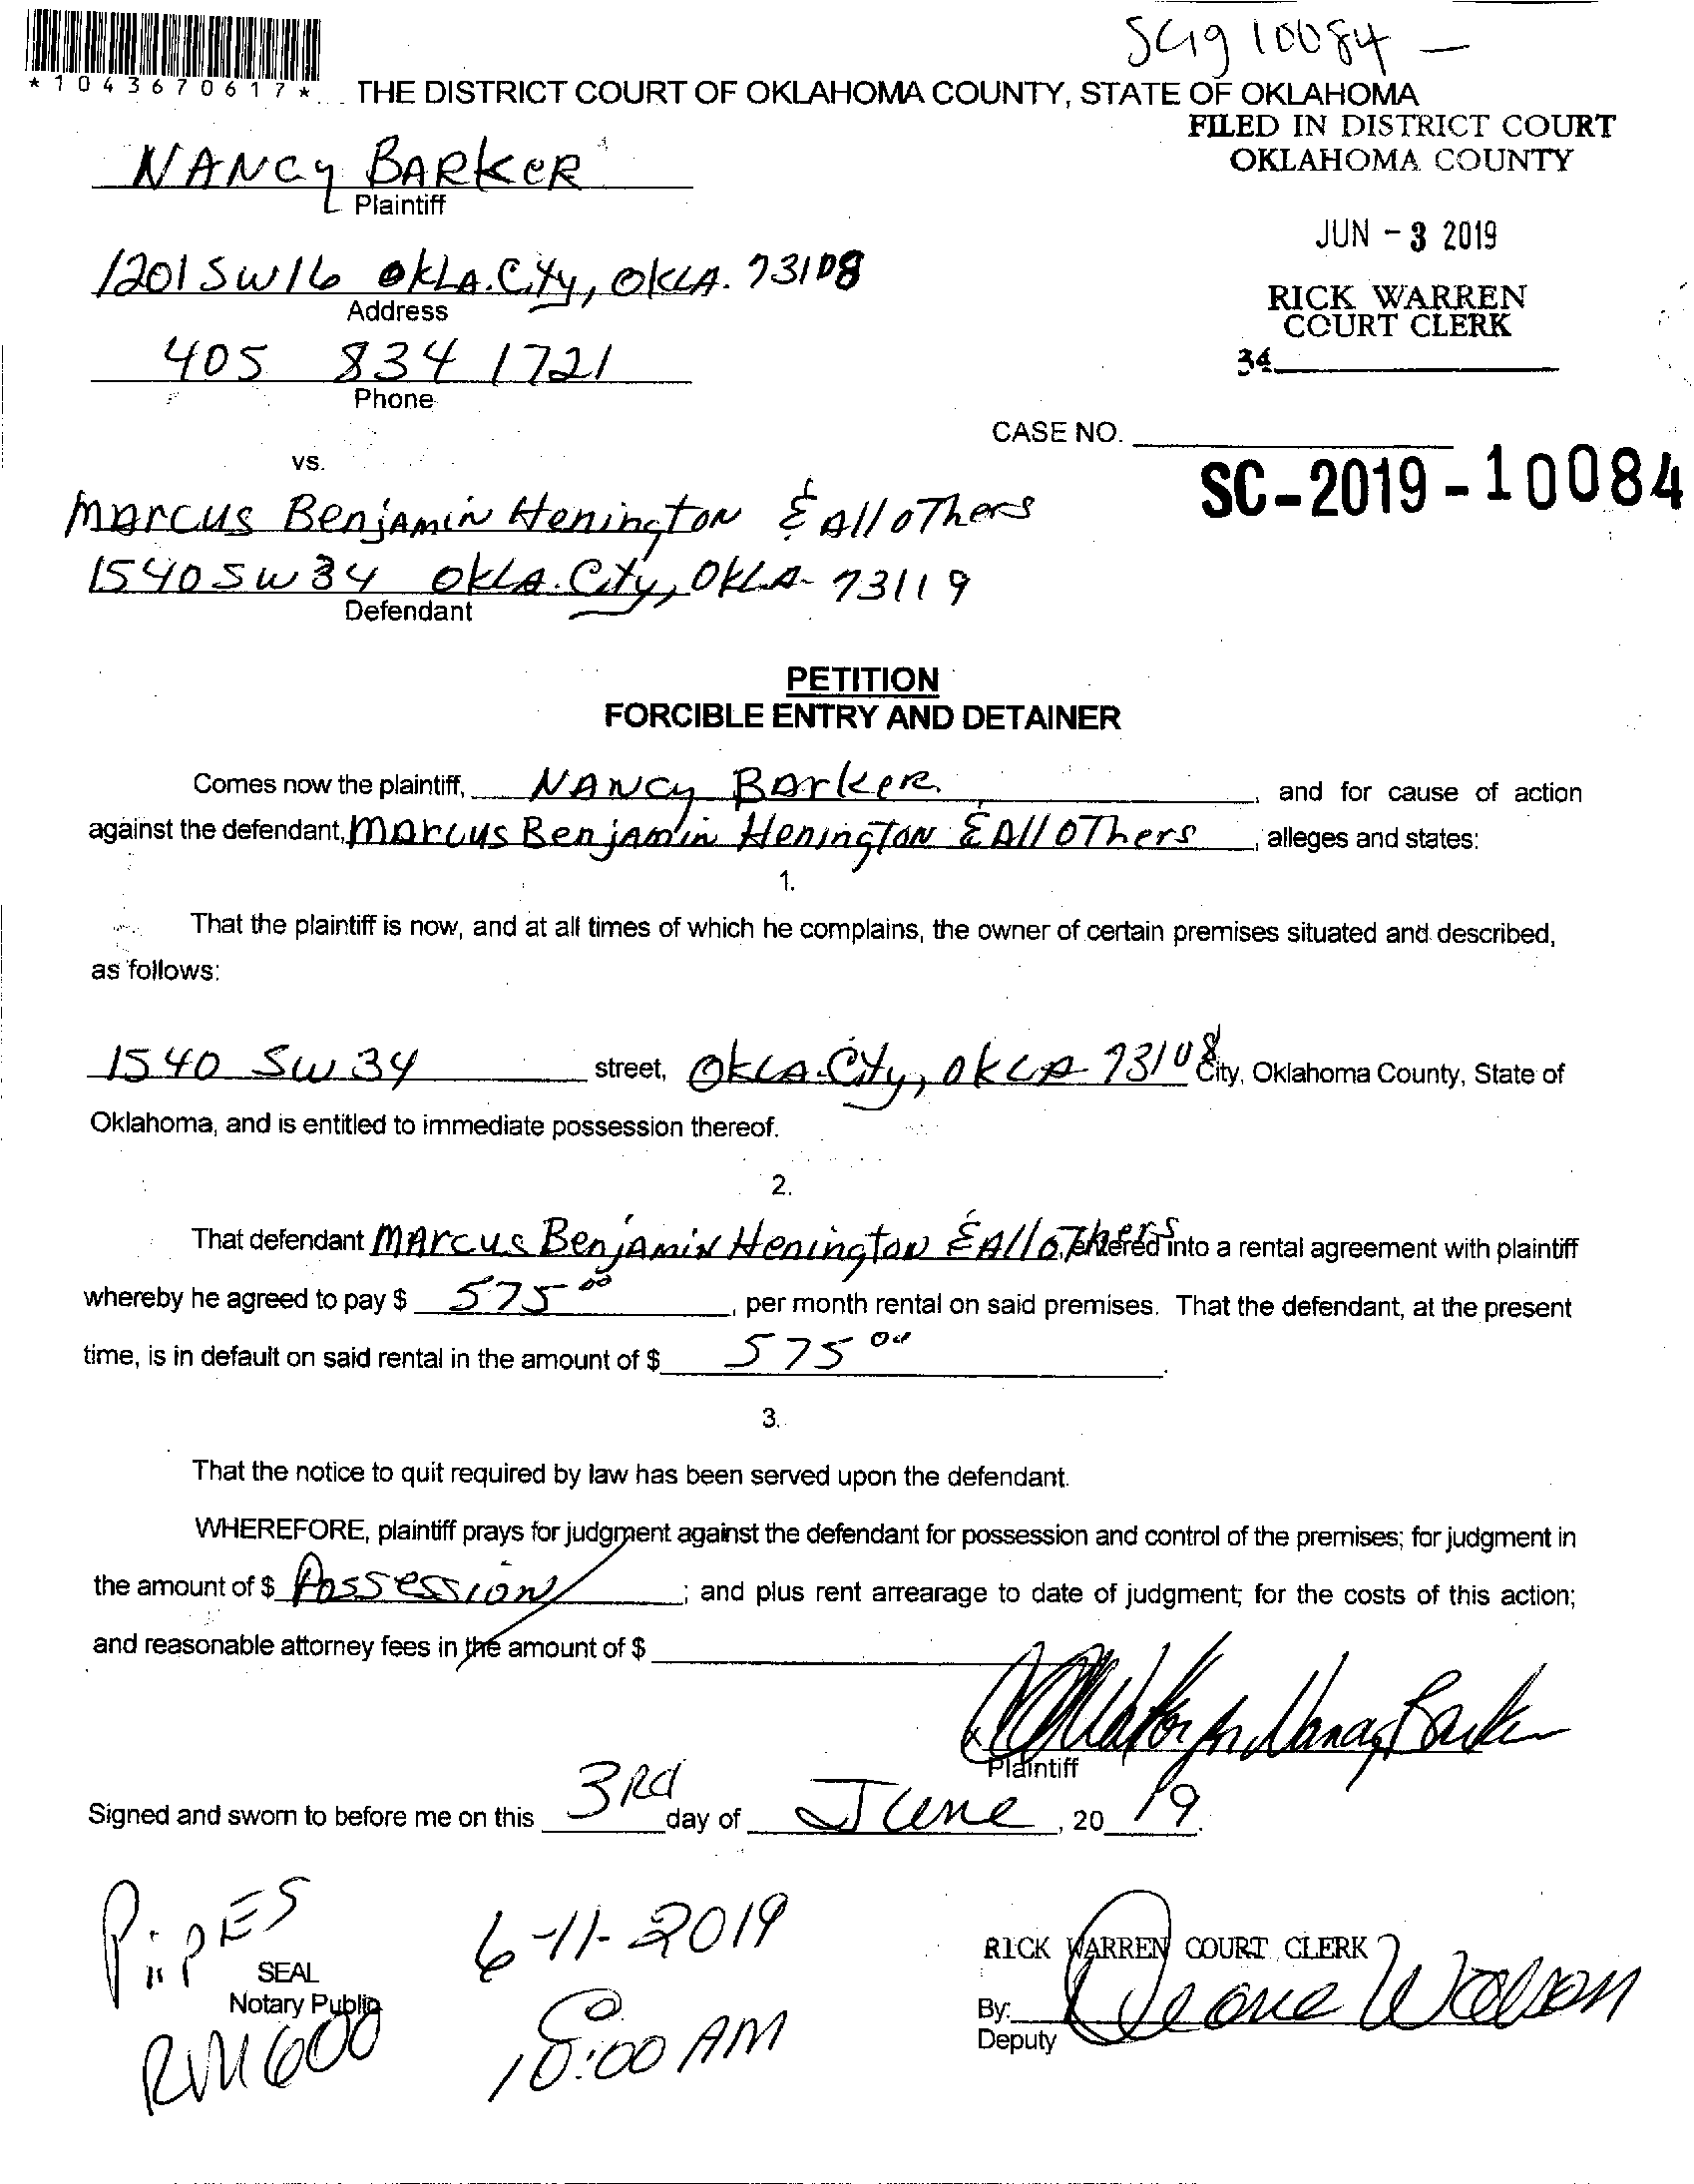 SC19 10084 -
*1043670617*
THE DISTRICT COURT OF OKLAHOMA COUNTY, STATE OF OKLAHOMA
FILED IN DISTRICT COURT
OKLAHOMA COUNTY
NANCY BARKER
Plaintiff
JUN - 3 2019
1201 SW 16 OKLA. City, OKLA. 73108
Address
RICK WARREN
COURT CLERK
34
405 834 1721
Phone
CASE NO.
SC-2019-10084
vs.
Marcus Benjamin Henington & All oThers
1540 SW 34 OKLA. City, OKLA- 73119
Defendant
PETITION
FORCIBLE ENTRY AND DETAINER
Comes now the plaintiff, NANCY BArkeR, and for cause of action
against the defendant, Marcus Benjamin Henington & All OThers, alleges and states:
1.
That the plaintiff is now, and at all times of which he complains, the owner of certain premises situated and described,
as follows:
1540 SW 34 street, OKLA. City, OKLA 73108 City, Oklahoma County, State of
Oklahoma, and is entitled to immediate possession thereof.
2.
That defendant MArcus Benjamin Henington & All oThers, entered into a rental agreement with plaintiff
whereby he agreed to pay $ 575 00, per month rental on said premises. That the defendant, at the present
time, is in default on said rental in the amount of $ 575 00.
3.
That the notice to quit required by law has been served upon the defendant.
WHEREFORE, plaintiff prays for judgment against the defendant for possession and control of the premises; for judgment in
the amount of $ Possession; and plus rent arrearage to date of judgment; for the costs of this action;
and reasonable attorney fees in the amount of $
for Nancy Barker
Plaintiff
Signed and sworn to before me on this 3Rd day of June, 20 19.
PiPES
6-11-2019
SEAL
Notary Public
RICK WARREN COURT CLERK
By:
Deputy
RM 600
@
10:00 AM